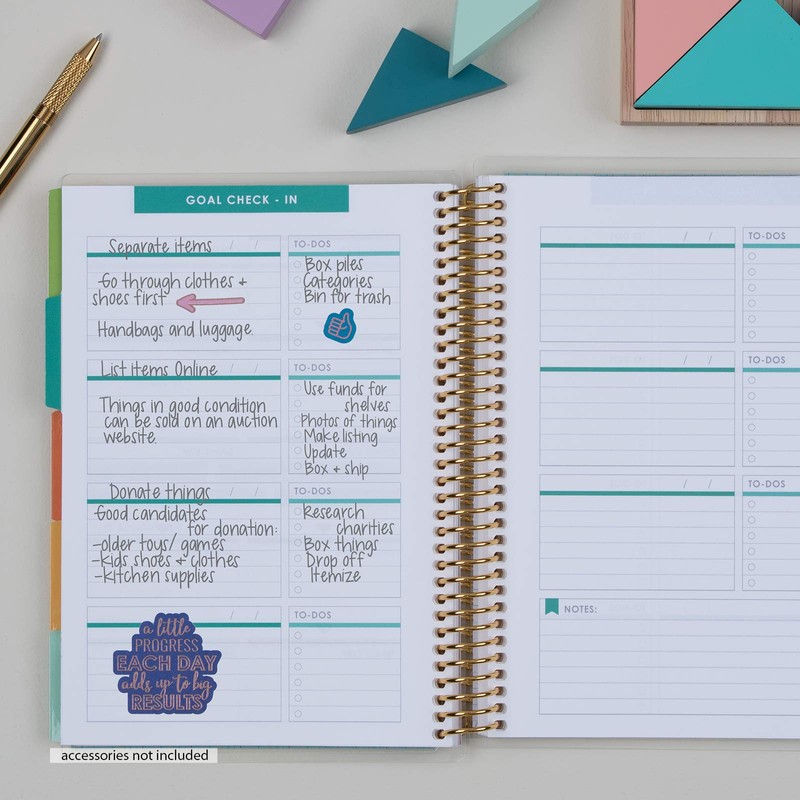 GOAL CHECK - IN
Separate items / /
Go through clothes +
shoes first
Handbags and luggage.
TO-DOS
Box piles
Categories
Bin for trash
List Items Online / /
Things in good condition
can be sold on an auction
website.
TO-DOS
Use funds for
shelves
Photos of things
Make listing
Update
Box + ship
Donate things / /
Good candidates
for donation:
-older toys/ games
-kids shoes + clothes
-kitchen supplies
TO-DOS
Research
charities
Box things
Drop off
Itemize
/ /
a little
PROGRESS
EACH DAY
adds up to big
RESULTS
TO-DOS
/ /
TO-DOS
/ /
TO-DOS
/ /
TO-DOS
NOTES:
accessories not included